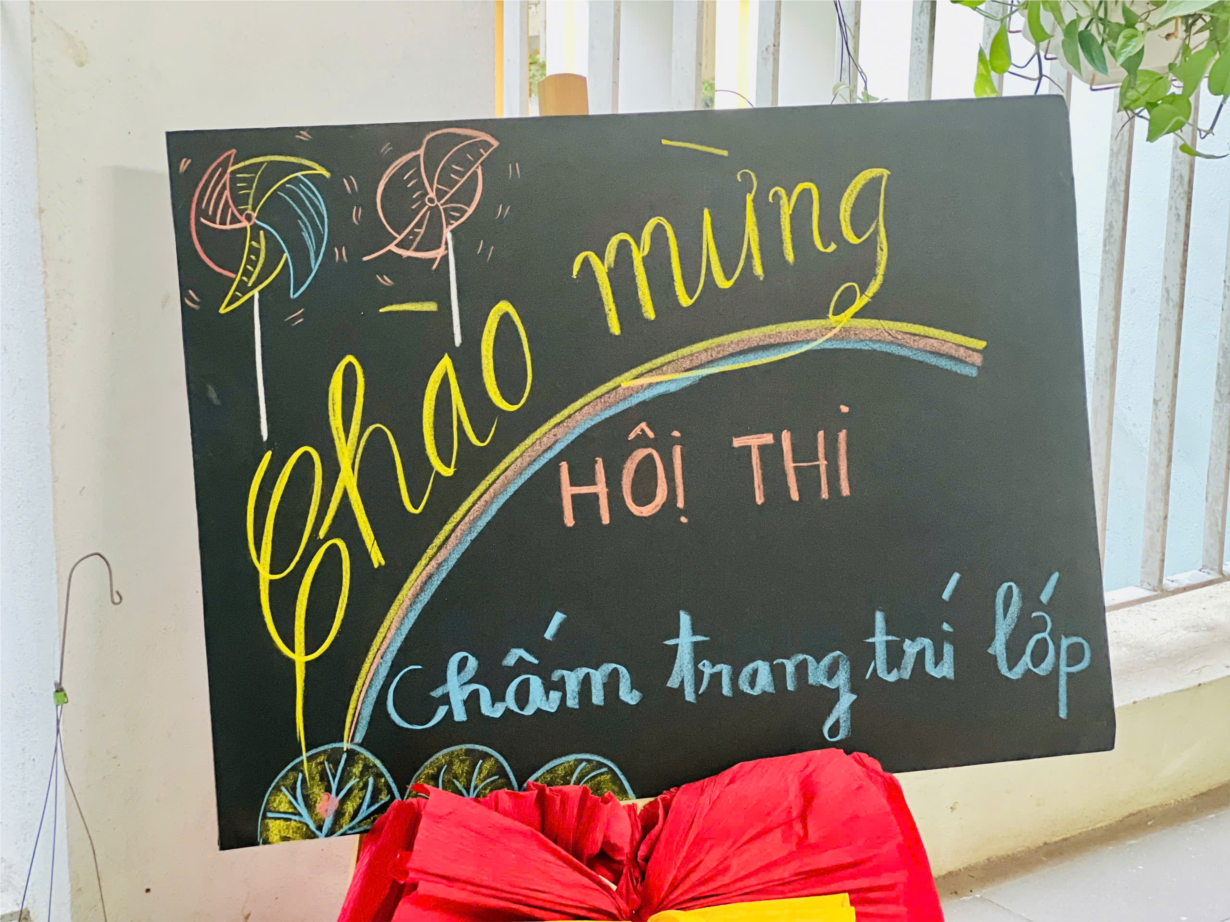 Chào mừng
HỘI THi
Chấm trang trí lớp